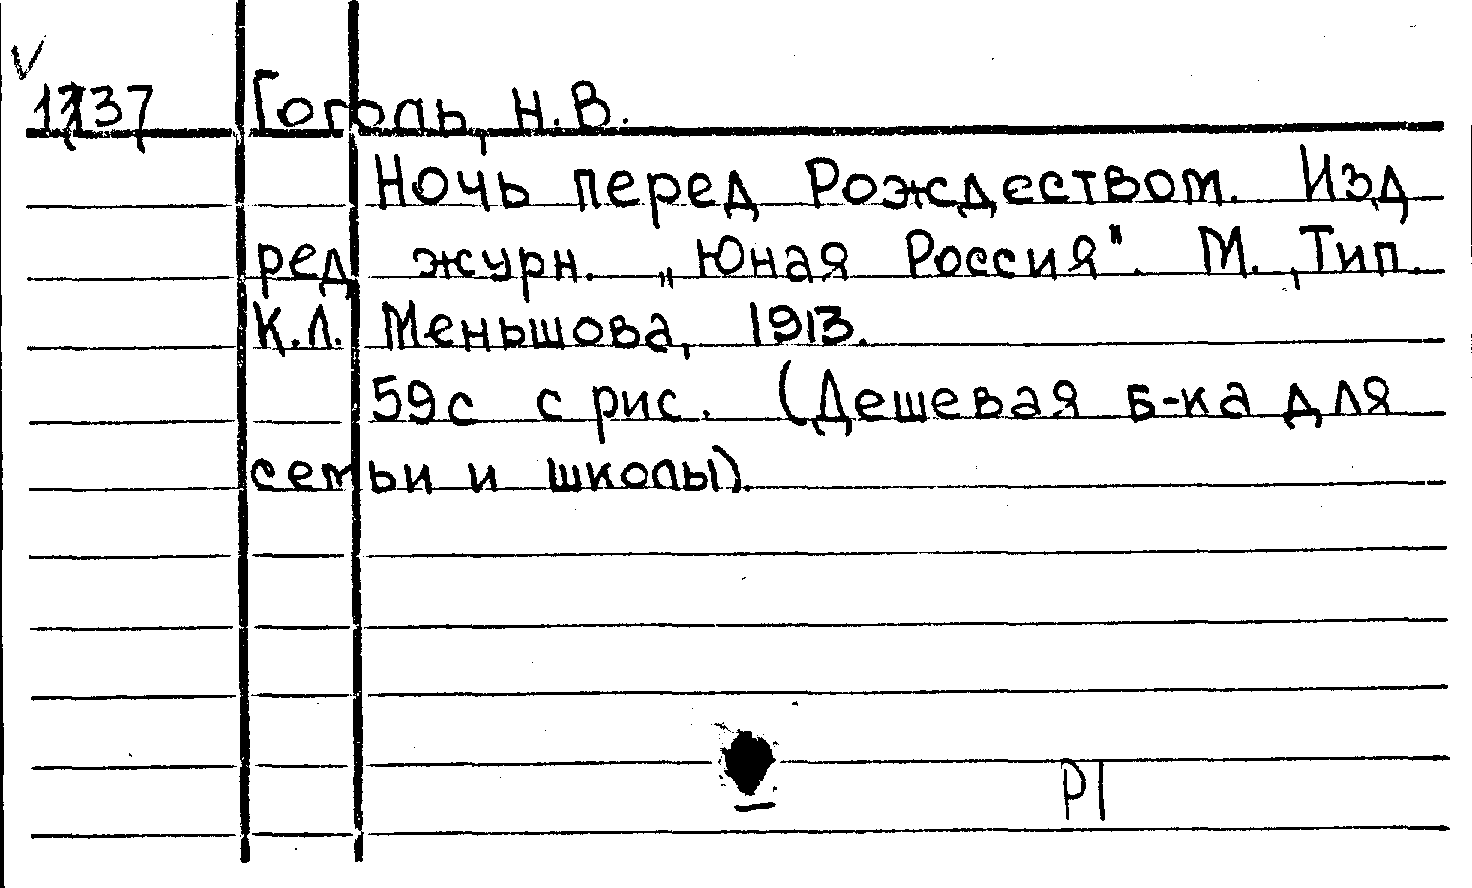 V
Гоголь, Н.В.
Ночь перед Рождеством. Изд
ред журн. „Юная Россия". М., Тип.
К.Л. Меньшова, 1913.
59с с рис. (Дешевая б-ка для
семьи и школы).
PI